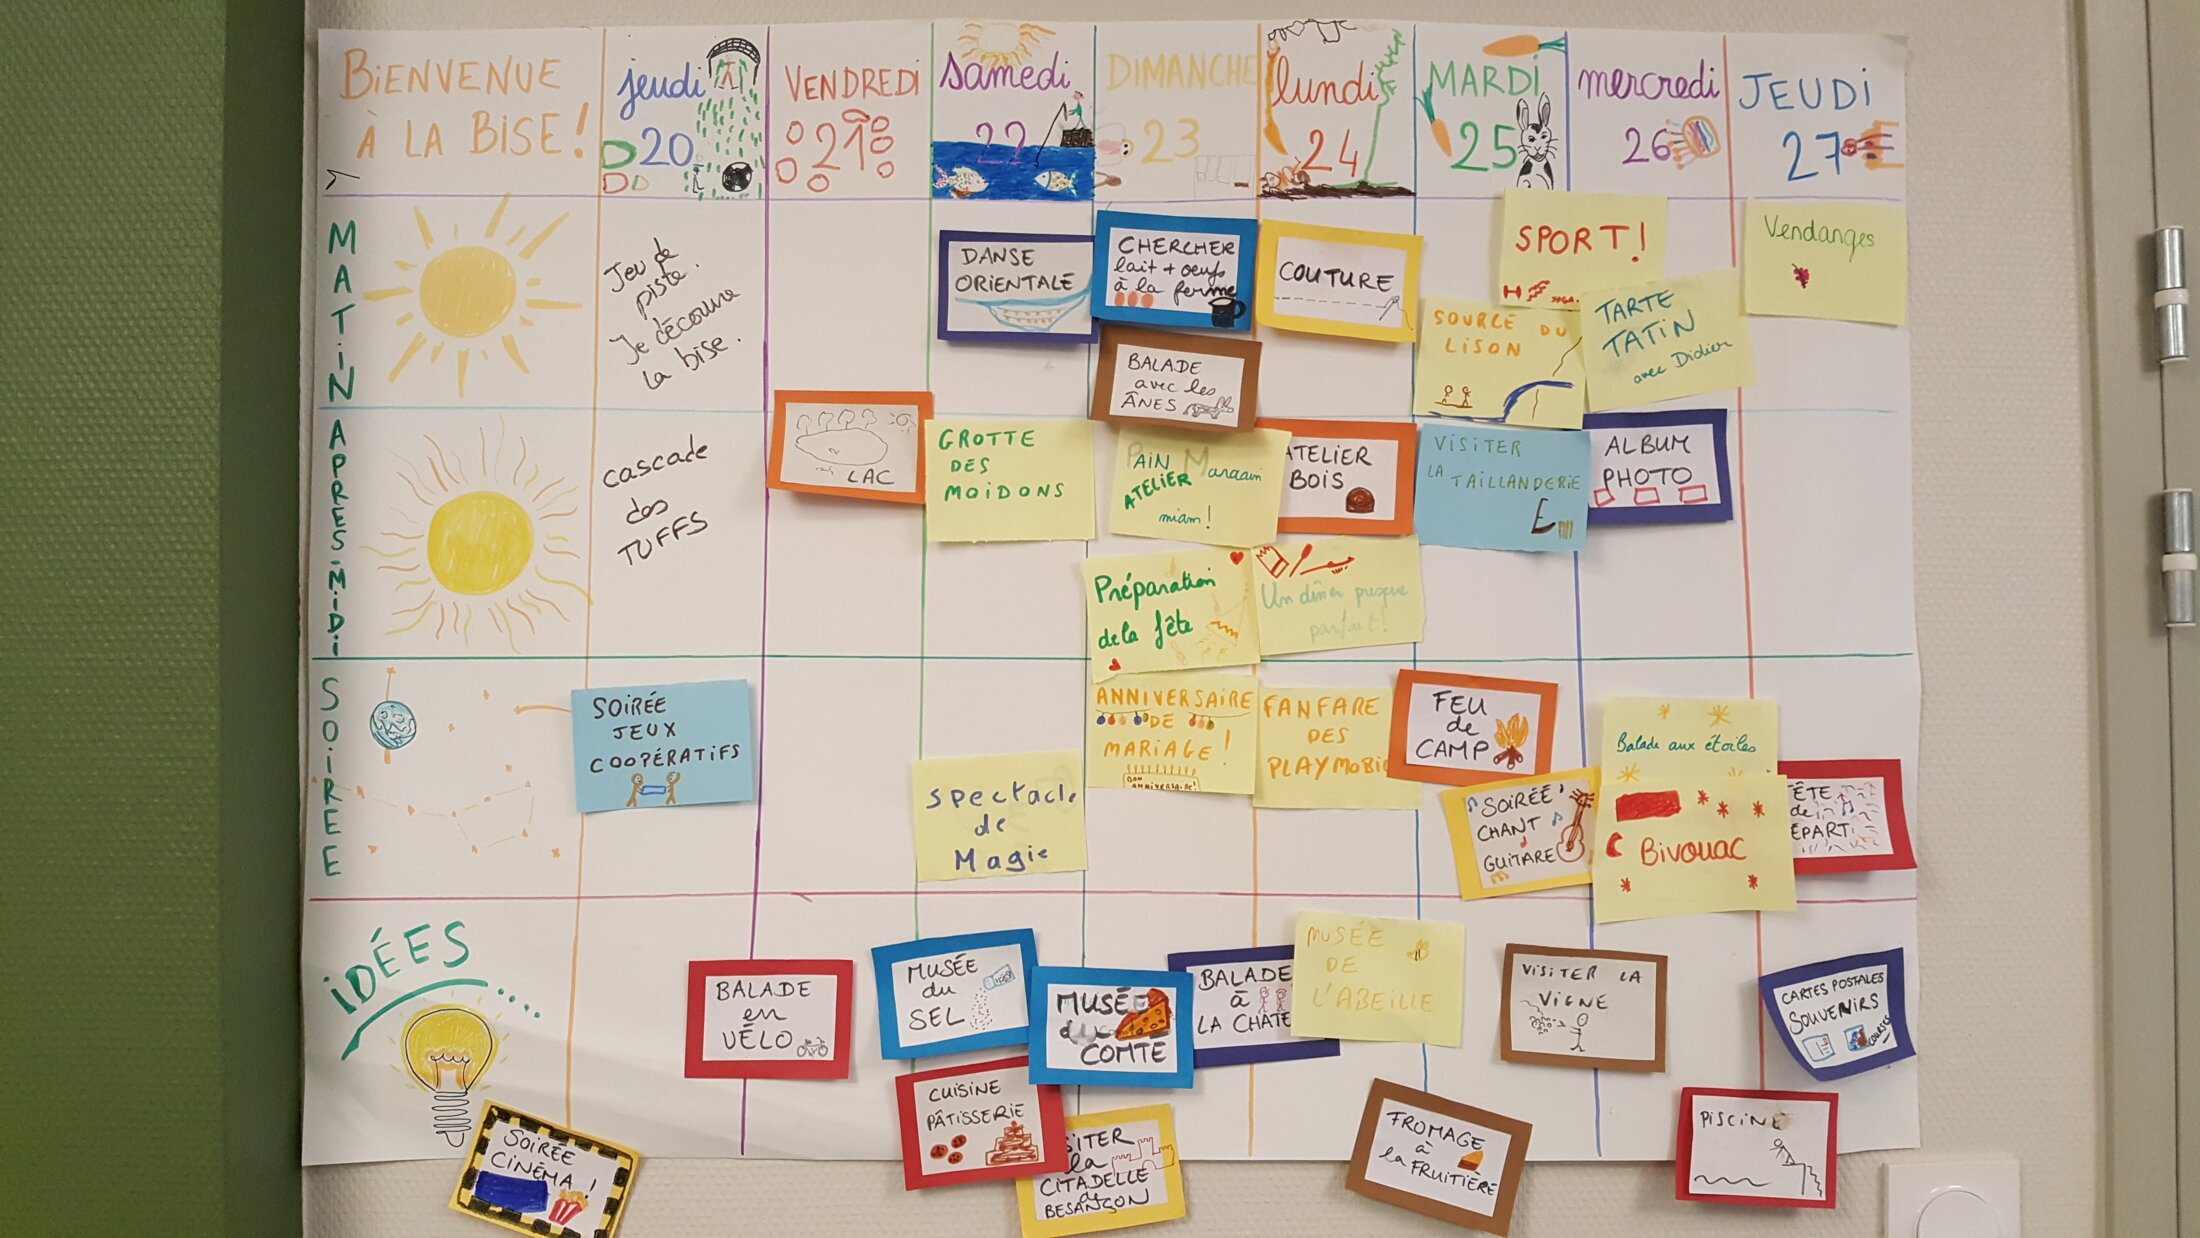 BiENVENUE
À LA BISE!
jeudi
20
VENDREDI
21
Samedi
22
DIMANCHE
23
lundi
24
MARDI
25
mercredi
26
JEUDI
27
MATIN
Jeu de
piste.
Je découvre
la bise.
DANSE
ORIENTALE
CHERCHER
lait + oeufs
à la ferme
BALADE
avec les
ÂNES
COUTURE
SOURCE DU
LISON
SPORT!
TARTE
TATIN
avec Didier
Vendanges
APRES-MiDi
cascade
des
TUFFS
LAC
GROTTE
DES
MOIDONS
PAIN
ATELIER
miam!
Préparation
de la fête
ATELIER
BOIS
Un dîner presque
parfait!
VISITER
LA TAILLANDERIE
ALBUM
PHOTO
SOiREE
SOIRÉE
JEUX
COOPÉRATIFS
Spectacle
de
Magie
ANNIVERSAIRE
DE
MARIAGE!
BON
ANNIVERSAIRE!
FANFARE
DES
PLAYMOBIL
FEU
de
CAMP
SOIRÉE
CHANT
GUITARE
Balade aux étoiles
Bivouac
FÊTE
de
DÉPART
iDÉES....
SOIRÉE
CINÉMA!
BALADE
en
VÉLO
MUSÉE
du
SEL
CUISINE
PÂTISSERIE
MUSÉE
du
COMTE
VISITER
la
CITADELLE
de
BESANÇON
BALADE
à
LA CHATE
MUSÉE
DE
L'ABEILLE
FROMAGE
à
la FRUITIÈRE
VISITER LA
VIGNE
PISCINE
CARTES POSTALES
SOUVENIRS
COURSES